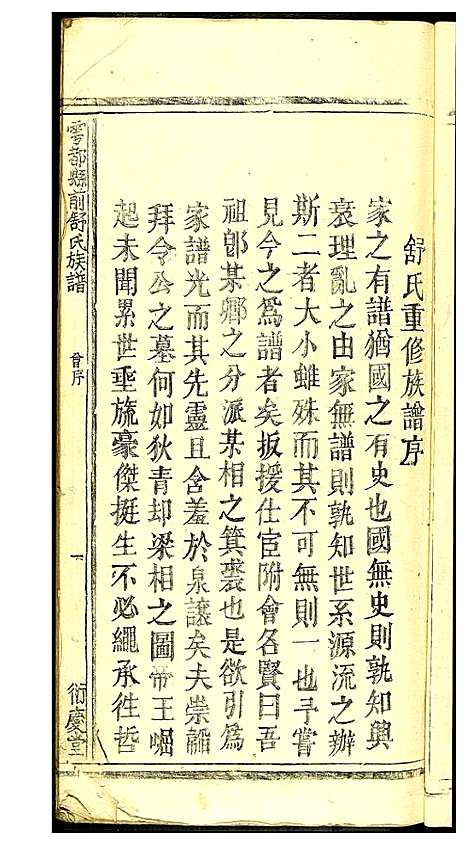 舒氏重修族譜序
家之有譜猶國之有史也國無史則孰知興
衰理亂之由家無譜則孰知世系源流之辦
斯二者大小雖殊而其不可無則一也予嘗
見今之爲譜者矣扳援仕宦附會名賢曰吾
祖卽某鄉之分派某相之箕裘也是欲引爲
家譜光而其先靈且含羞於泉讓矣夫崇韜
拜令公之墓何如狄青却梁相之圖帝王崛
起未聞累世埀旒豪傑挺生不必繩承徃哲
雩都縣前舒氏族譜
曾序
一
衍慶堂